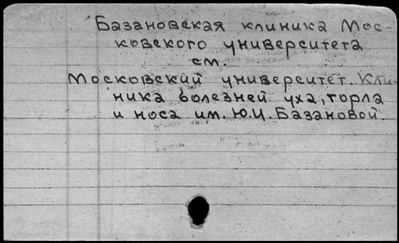 Базановская клиника Мос-
ковского университета
см.
Московский университет. Кли-
ника болезней уха, горла
и носа им. Ю.И. Базановой.